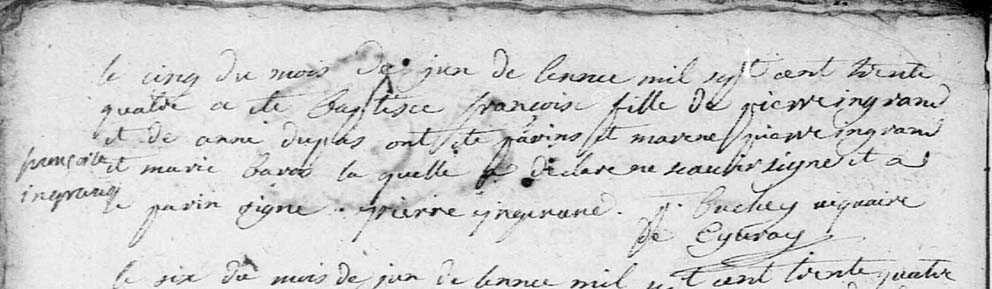 le cinq du mois de jun de lennee mil sept cent trente
quatre a ete baptisee françoise fille de pierre ingrand
et de anne dupas ont ete parins et marene pierre ingrand
françoise
ingrand
et marie la quelle a declare ne scauoir signe et a
le parin signe . pierre yngerand . viquaire
de
le six du mois de jun de lennee mil sept cent trente quatre